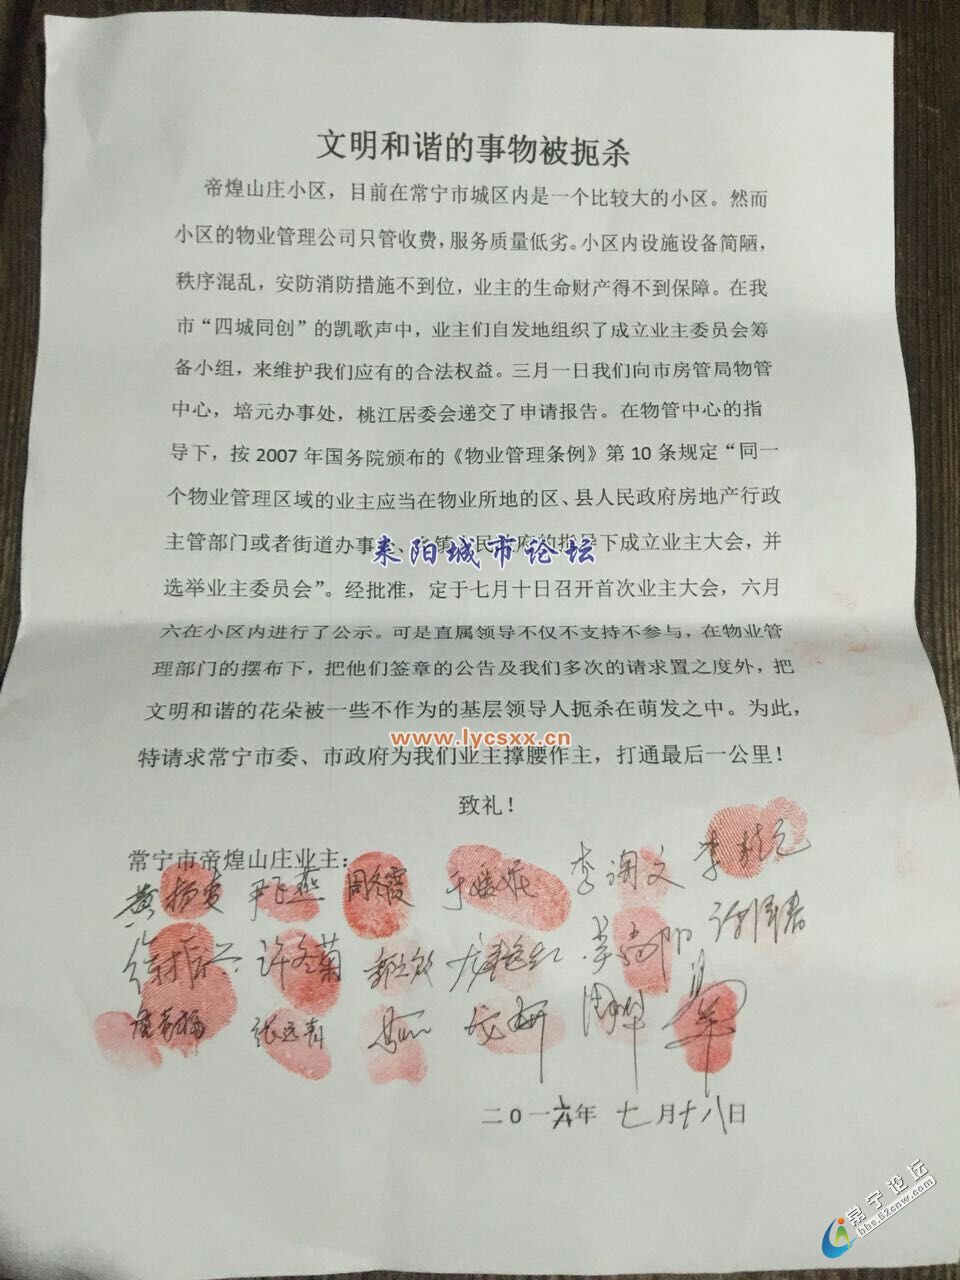 文明和谐的事物被扼杀
帝煌山庄小区，目前在常宁市城区内是一个比较大的小区。然而
小区的物业管理公司只管收费，服务质量低劣。小区内设施设备简陋，
秩序混乱，安防消防措施不到位，业主的生命财产得不到保障。在我
市“四城同创”的凯歌声中，业主们自发地组织了成立业主委员会筹
备小组，来维护我们应有的合法权益。三月一日我们向市房管局物管
中心，培元办事处，桃江居委会递交了申请报告。在物管中心的指
导下，按 2007 年国务院颁布的《物业管理条例》第 10 条规定“同一
个物业管理区域的业主应当在物业所地的区、县人民政府房地产行政
主管部门或者街道办事、镇民府的指导下成立业主大会，并
耒阳城市论坛
选举业主委员会”。经批准，定于七月十日召开首次业主大会，六月
六在小区内进行了公示。可是直属领导不仅不支持不参与，在物业管
理部门的摆布下，把他们签章的公告及我们多次的请求置之度外，把
文明和谐的花朵被一些不作为的基层领导人扼杀在萌发之中。为此，
www.lycsxx.cn
特请求常宁市委、市政府为我们业主撑腰作主，打通最后一公里！
致礼！
常宁市帝煌山庄业主：
尹飞燕 周冬霞 李淘文 李桂元
徐振兴 许冬菊
张远青 周华
二0一六年 七月十八日
常宁论坛
bbs.52cnw.com